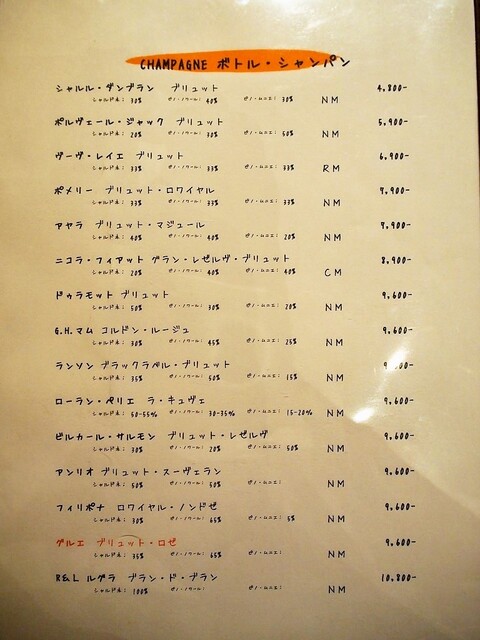 CHAMPAGNE ボトル・シャンパン
シャルル・ダンブラン ブリュット 4,800-
シャルドネ: 30% ピノ・ノワール: 40% ピノ・ムニエ: 30% NM
ポルヴェール・ジャック ブリュット 5,900-
シャルドネ: 20% ピノ・ノワール: 30% ピノ・ムニエ: 50% NM
ヴーヴ・レイエ ブリュット 6,900-
シャルドネ: 33% ピノ・ノワール: 33% ピノ・ムニエ: 33% RM
ポメリー ブリュット・ロワイヤル 7,900-
シャルドネ: 33% ピノ・ノワール: 33% ピノ・ムニエ: 33% NM
アヤラ ブリュット・マジュール 7,900-
シャルドネ: 40% ピノ・ノワール: 40% ピノ・ムニエ: 20% NM
ニコラ・フィアット グラン・レゼルヴ・ブリュット 8,900-
シャルドネ: 20% ピノ・ノワール: 40% ピノ・ムニエ: 40% CM
ドゥラモット ブリュット 9,600-
シャルドネ: 50% ピノ・ノワール: 30% ピノ・ムニエ: 20% NM
G.H.マム コルドン・ルージュ 9,600-
シャルドネ: 30% ピノ・ノワール: 45% ピノ・ムニエ: 25% NM
ランソン ブラックラベル・ブリュット
シャルドネ: 35% ピノ・ノワール: 50% ピノ・ムニエ: 15% NM
ローラン・ペリエ ラ・キュヴェ 9,600-
シャルドネ: 50-55% ピノ・ノワール: 30-35% ピノ・ムニエ: 15-20% NM
ビルカール・サルモン ブリュット・レゼルヴ 9,600-
シャルドネ: 30% ピノ・ノワール: 20% ピノ・ムニエ: 50% NM
アンリオ ブリュット・スーヴェラン 9,600-
シャルドネ: 50% ピノ・ノワール: 50% ピノ・ムニエ: NM
フィリポナ ロワイヤル・ノンドゼ 9,600-
シャルドネ: 30% ピノ・ノワール: 65% ピノ・ムニエ: 5% NM
グルエ ブリュット・ロゼ 9,600-
シャルドネ: 35% ピノ・ノワール: 65% ピノ・ムニエ: NM
R&L ルグラ ブラン・ド・ブラン 10,800-
シャルドネ: 100% ピノ・ノワール: ピノ・ムニエ: NM